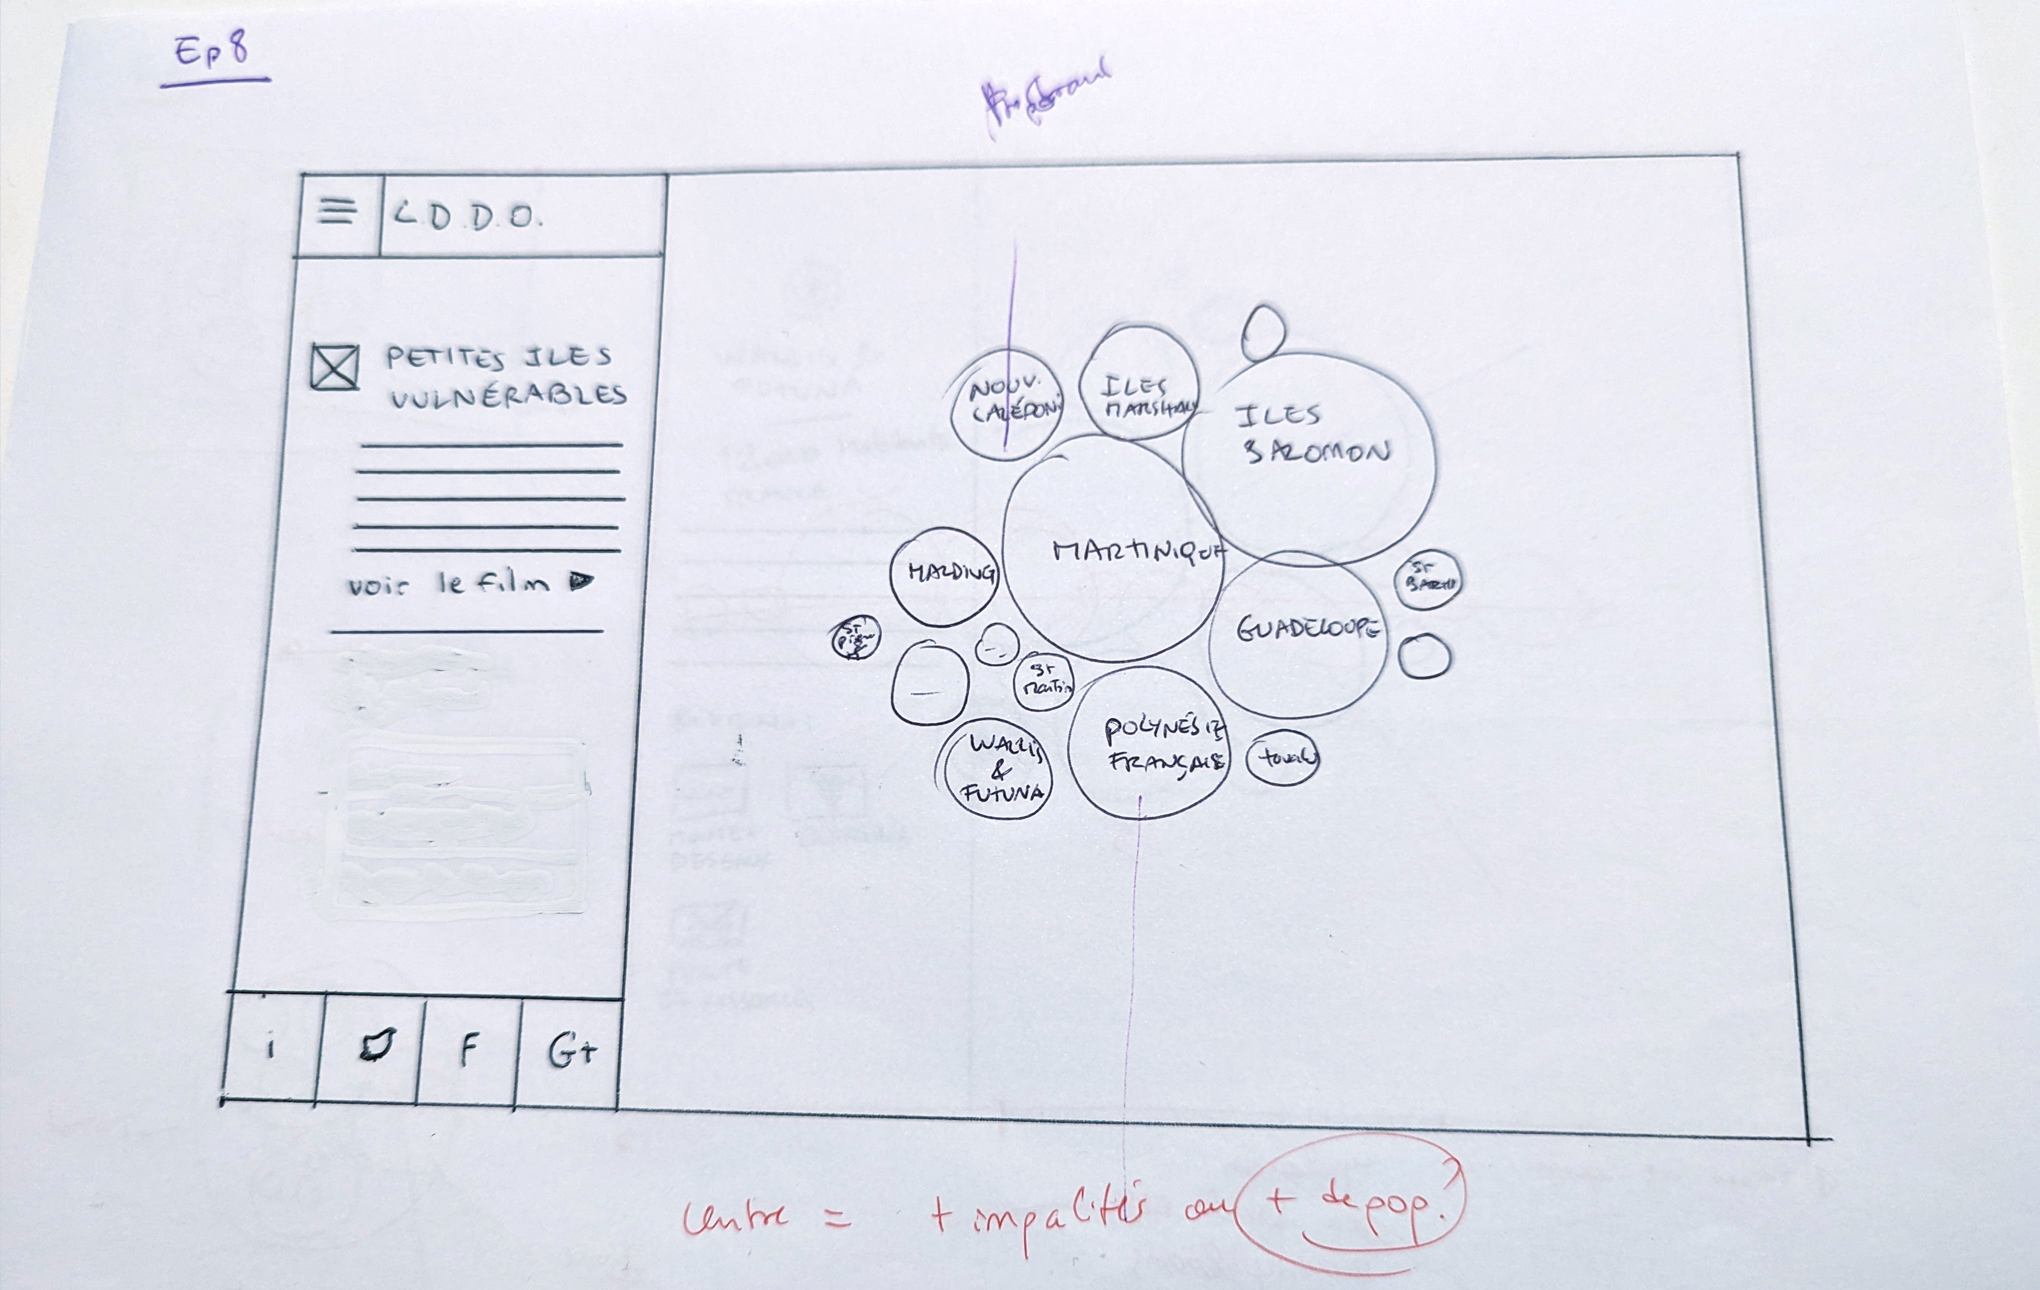 Ep 8
L.D.D.O.
PETITES ILES
VULNÉRABLES
voir le film
i
F
G+
NOUV.
CALÉDONI
ILES
MARSHALL
ILES
SALOMON
MARTINIQUE
MALDIVES
ST
BARTH
GUADELOUPE
ST
St
Martin
POLYNÉSIE
FRANÇAISE
WALLIS
&
FUTUNA
tuvalu
centre = + impactés ou + de pop ?